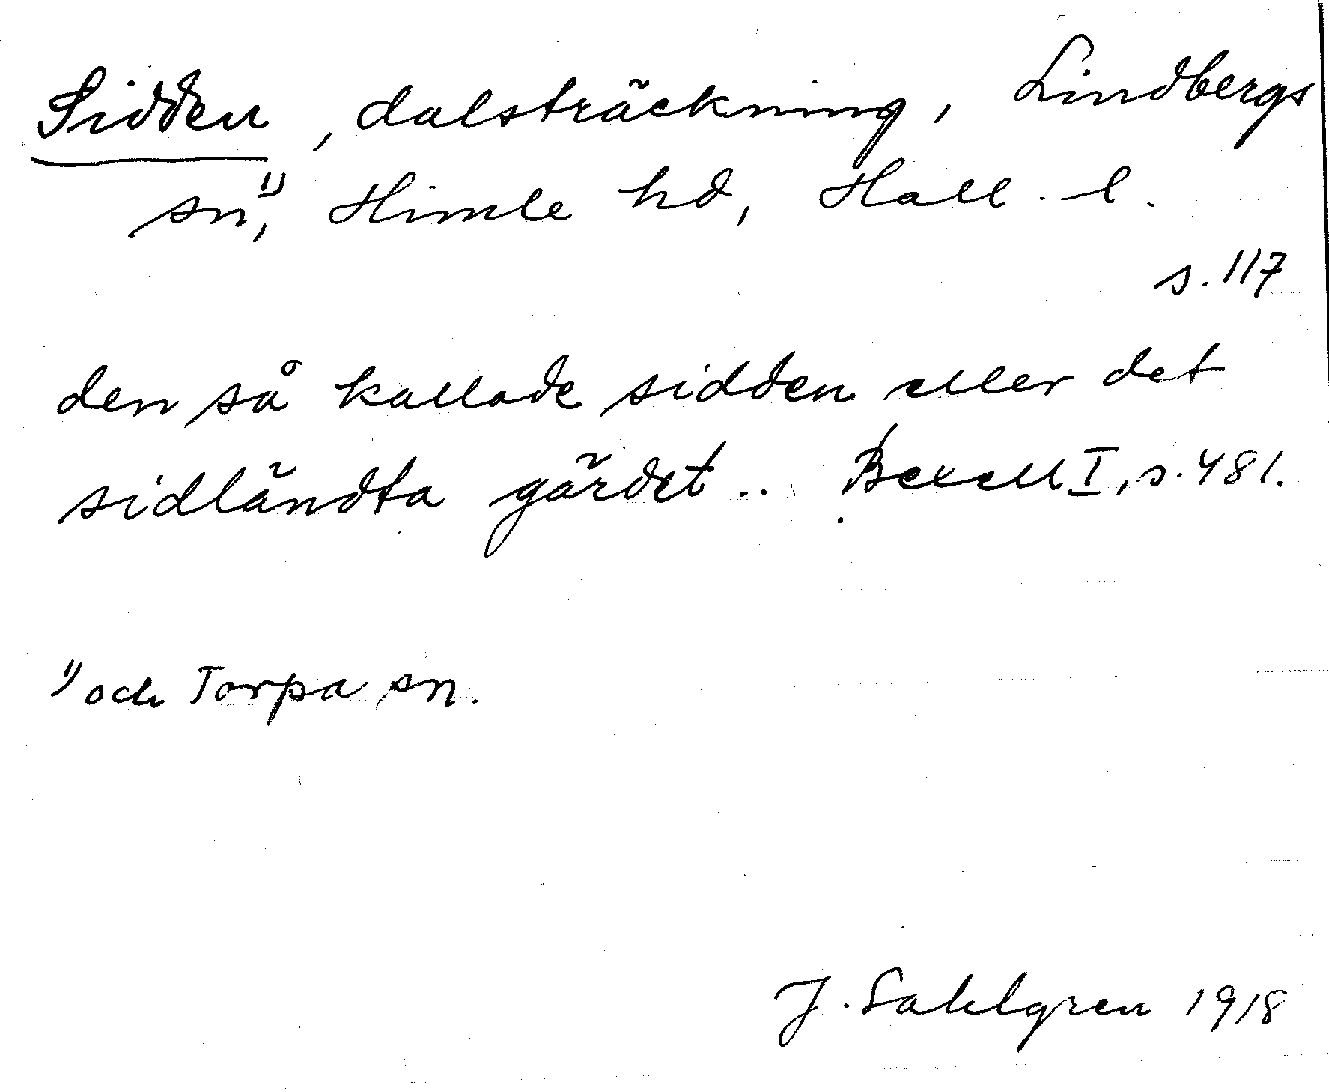 Sidden, dalsträckning, Lindbergs
sn¹⁾, Himle hd, Hall. l.
s. 117
den så kallade sidden eller det
sidländta gärdet .. Bexell I, s. 481.
¹⁾ och Torpa sn.
J. Sahlgren 1918